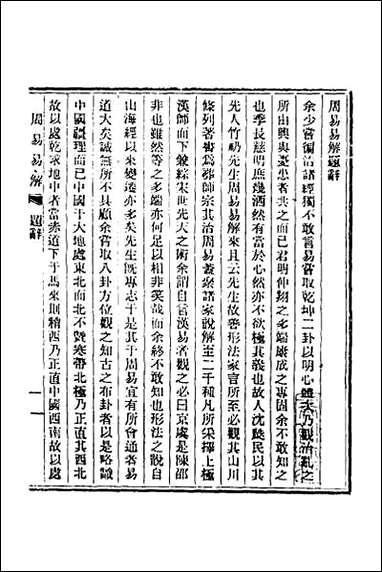 周易易解題辭
余少嘗徧治諸經獨不敢言易嘗取乾坤二卦以明心體次乃觀治亂之
所由興與憂患者共之而已君明仲翔之多端康成之專固余不敢知之
也季長慈明庶幾洒然有當於心然亦不欲極其教也故人沈瓞民以其
先人竹礽先生周易易解來且云先生故善形法家言所至必觀其山川
條列著書爲葬師宗其治周易蒐聚諸家說解至二千種凡所采擇上極
漢師而下兼綜宋世先天之術余謂自言漢易者觀之必曰京虞是陳邵
非也雖然等之多端亦何足以相非笑哉而余終不敢知也形法之說自
山海經以來變遷亦多矣先生旣專志于是其于周易宜有所會通者易
道大矣誠無所不具顧余嘗取八卦方位觀之知古之布卦者以是略識
中國疆理而已中國于大地處東北而北不暨寒帶北極乃正直其西北
故以處乾求地中者當赤道下于馬來則稍西乃正直中國西南故以處
周易易解
題辭
一